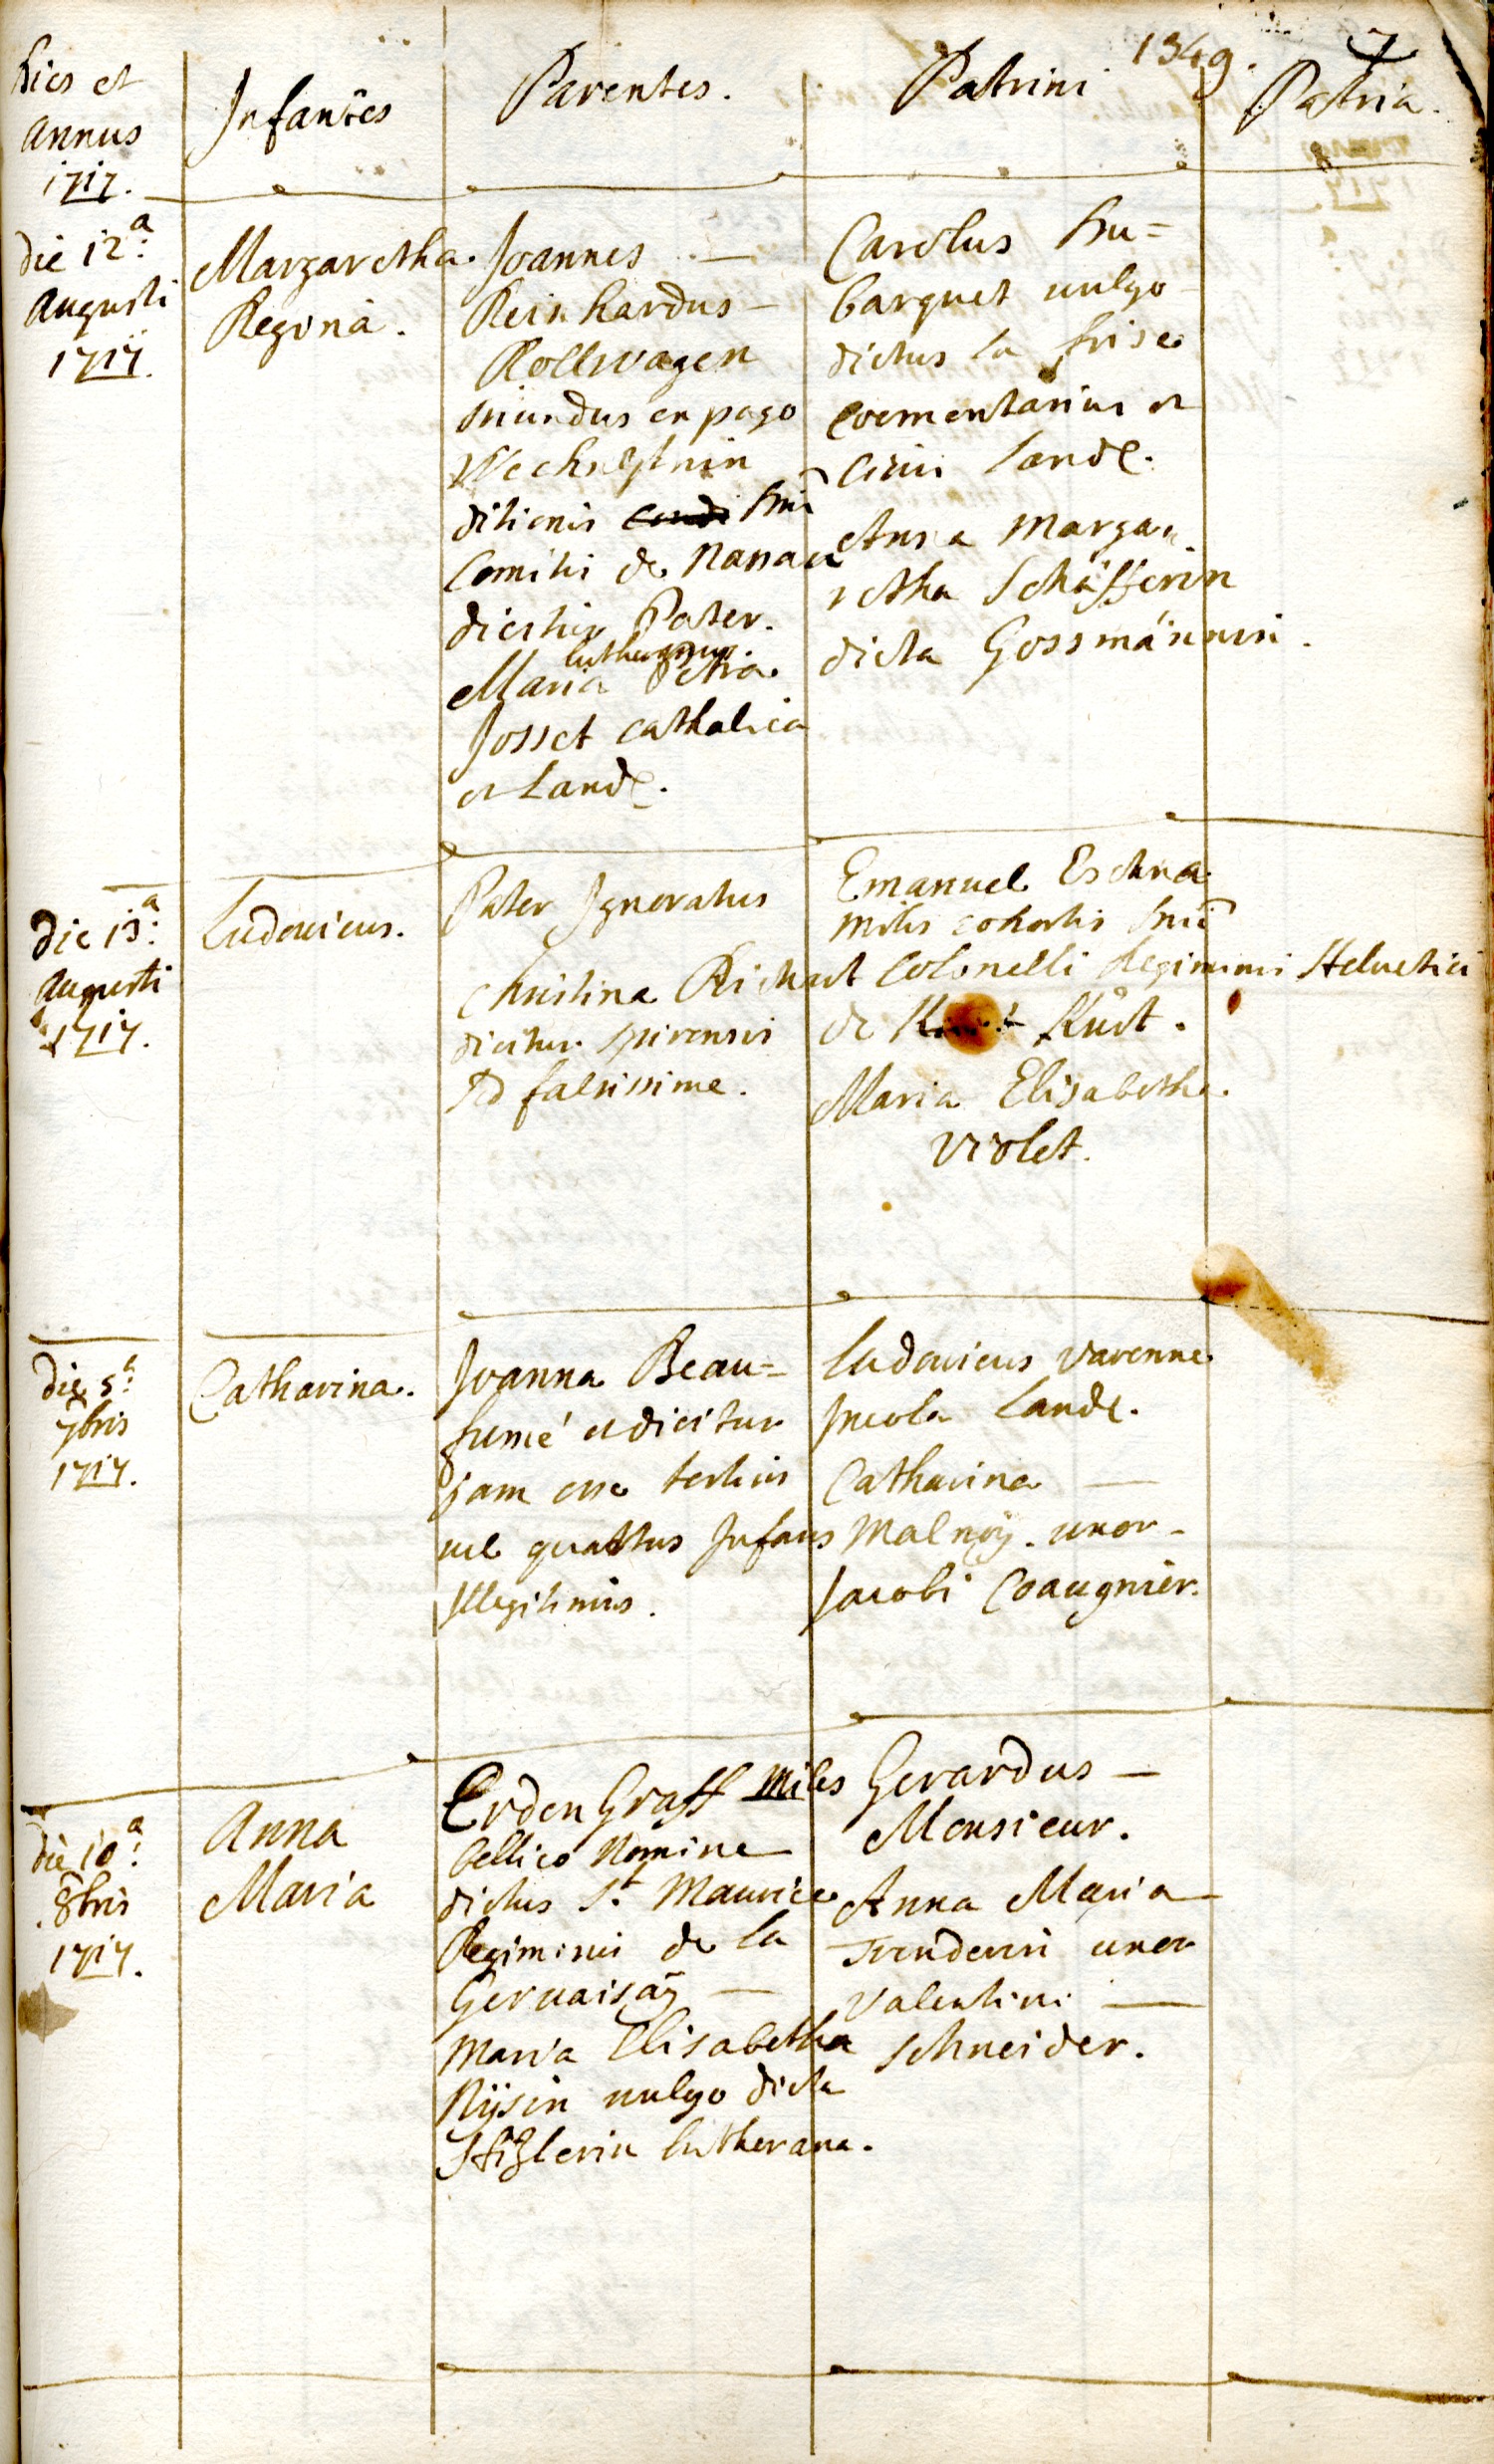 1349.
7
Dies et
annus
1717.
Infantes
Parentes.
Patrini
Patria.
die 12a:
Augusti
1717.
Margaretha
Regina.
Joannes —
Reinhardus —
Rollwagen
oriundus ex pago
ditionis
Comitis de Nassau
dicitur Pater.
lutheranus.
Maria Petra
Josset catholica
ex Land.
Carolus Hu=
barquet vulgo
dictus la frise
coementarius et
civis Land.
Anna Marga=
retha Schäfferin
dicta Gossmännin.
die 13a:
Augusti
1717.
Ludovicus.
Pater Ignoratus
Christina Richart
dicitur spirensis
sed falsissime.
Emanuel Eschna
miles cohortis
Colonelli Regiminis Helvetici
de Kürt.
Maria Elisabetha
Violet.
die 5a:
7bris
1717.
Catharina.
Joanna Beau=
fumé et dicitur
jam esse tertius
vel quartus Infans
Illegitimus.
Ludovicus Varenne
Incola Land.
Catharina —
Malnoÿ. uxor —
Jacobi Coaugnier.
die 10a:
8bris
1717.
Anna
Maria
Erden Graff Miles
bellico Nomine
dictus St. Maurice
Regiminis de la
Gervaisaÿ —
Maria Elisabetha
Rÿsin vulgo dicta
lutherana.
Gerardus —
Monsieur.
Anna Maria
uxor
Valentini —
Schneider.